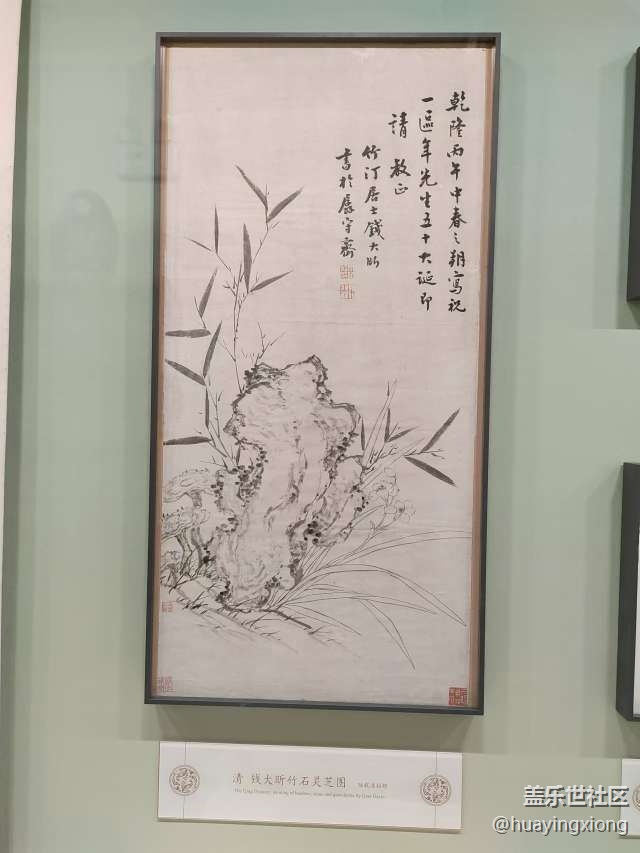 乾隆丙午中春之朔寫祝
一區年先生五十大誕即
請 教正
竹汀居士錢大昕
書於孱守齋
清 钱大昕竹石灵芝图
The Qing Dynasty, painting of bamboo, stone and ganoderma by Qian Daxin
盖乐世社区
@huayingxiong